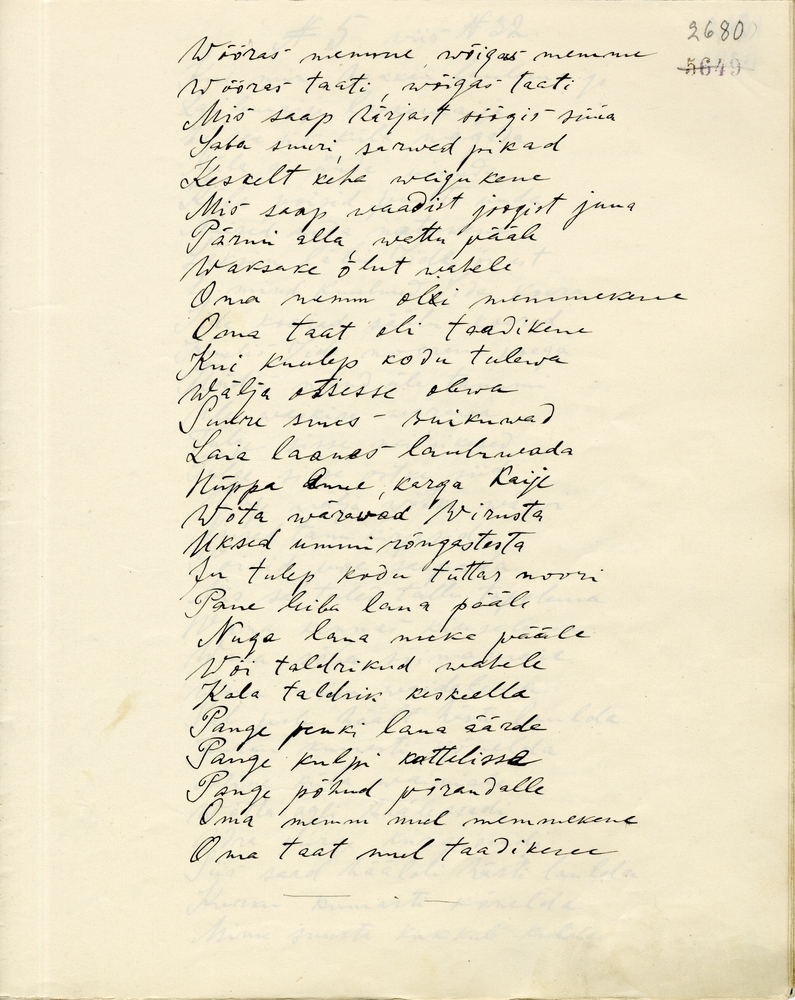 2680
5649
Wööras memme, wõigas memme
Wööras taati, wõigas taati
Mis saap härjast söögis süüa
Saba suuri, sarwed pikad
Keskelt keha waigukene
Mis saap waadist joogist juua
Pärmi alla, wattu pääle
Waksake õlut wahele
Oma memm oli memmekene
Oma taat oli taadikene
Kui kuulep kodu tulewa
Wälja otsesse olewa
Suure suus - huikuwad
Laia laanes laulwada
Hüppa Anne, karga Kaije
Wõta wärawad Wirusta
Uksed ummi rõngastesta
Ju tulep kodu tüttar noori
Pane leiba laua pääle
Nuga laua pääle
Või taldrikud wahele
Kala taldrik keskeella
Pange penki laua äärde
Pange kulpi kattelisse
Pange põhud põrandalle
Oma memm mul memmekene
Oma taat mul taadikene